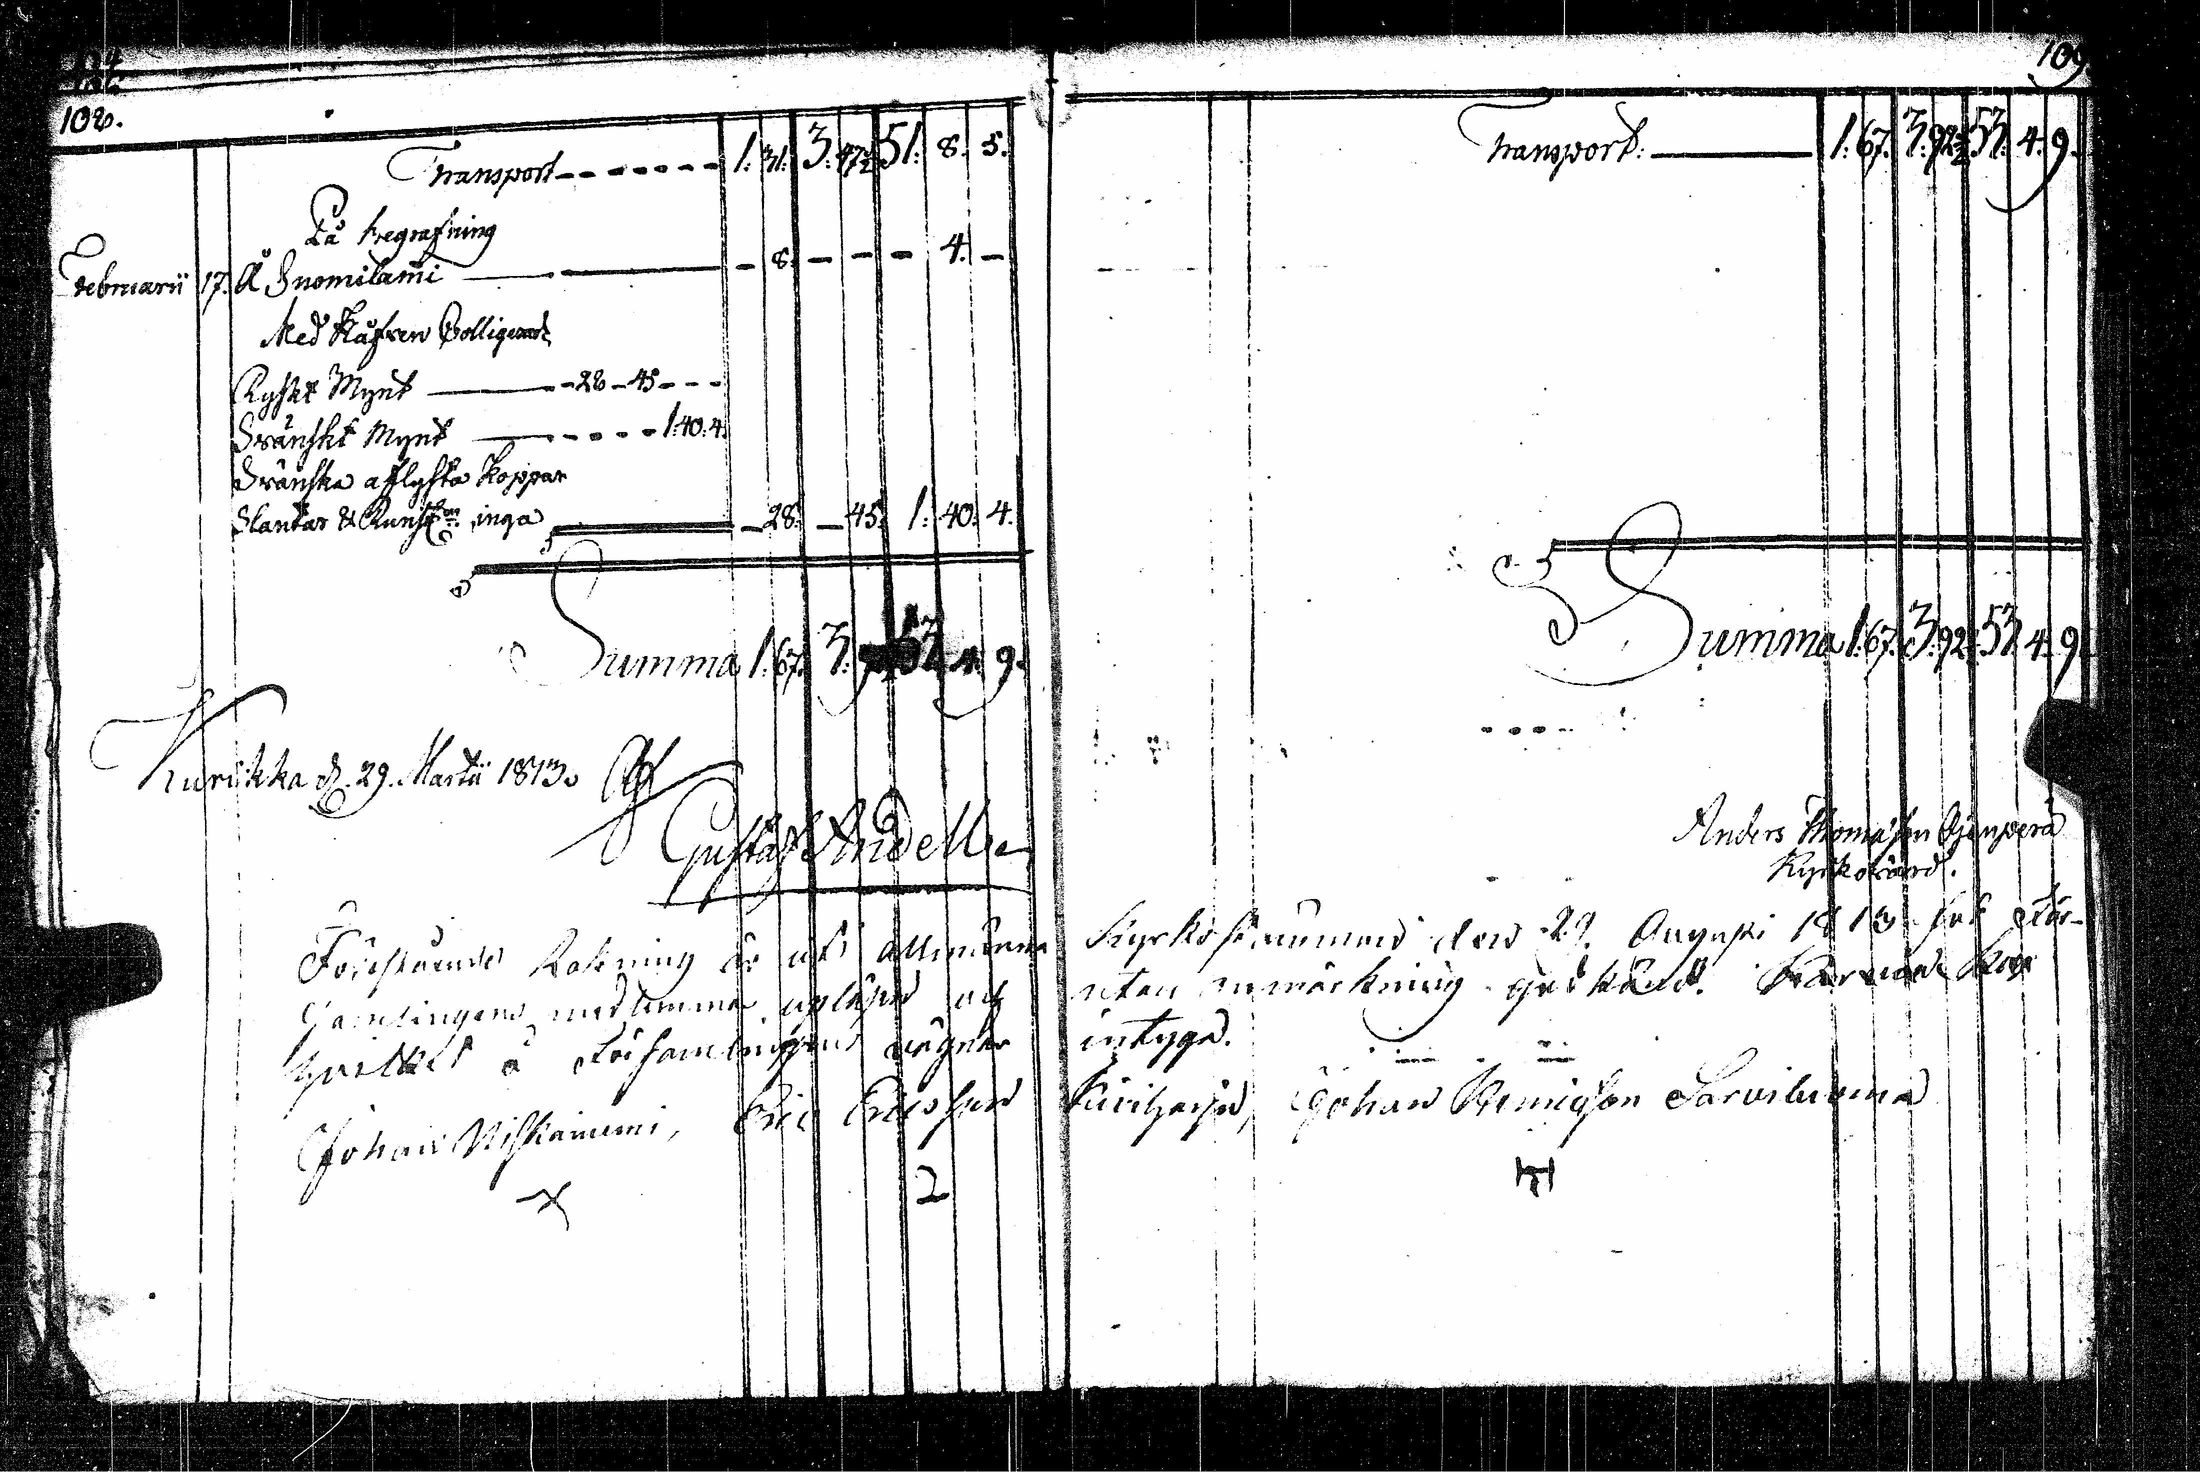 108.
Transport 1: 31: 3: 47½ 51: 8. 5.
På begrafning
Februarii 17. Å Snomilami - 8. - - - 4. -
Med Håfven Colligerade
Ryskt Mynt - 28 - 45
Svänskt Mynt 1:40:4.
Svänska aflysta Koppar
Slantar & Runst. inga - 28. - 45. 1: 40: 4.
Summa 1: 67. 3: 53 4. 9.
Kurikka d. 29. Martii 1813.
Gustaf
Förestående Räkning är uti allmänna
samlingens medlemmar upläst och
hvilket å Församlingens vägnar
Johan Niskaniemi, Eric Ericsson
2
109
Transport: 1: 67. 3: 92½ 53: 4. 9.
Summa 1: 67. 3: 92½ 53. 4. 9.
Anders Thomasson
Kyrkovärd.
Kyrkostämman den 29. Augusti 1813 för För-
utan anmärkning godkänd.
intyga.
Johan Sarviluoma